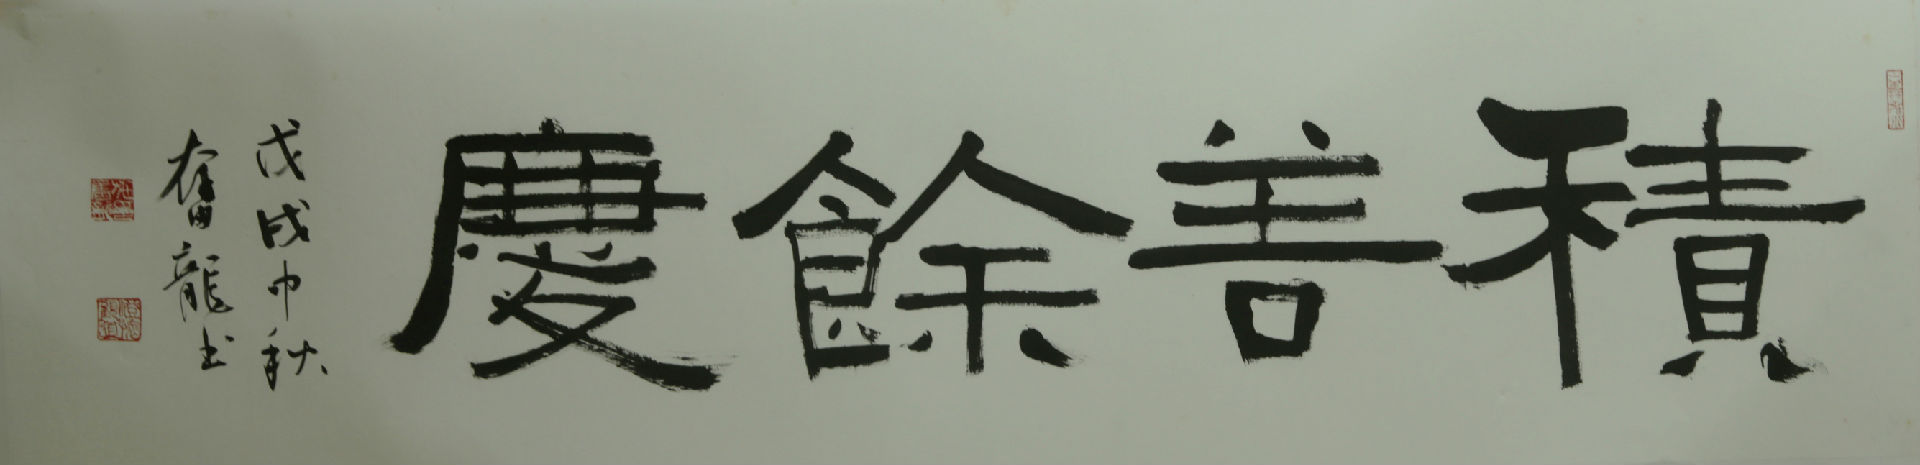 積善餘慶
戊戌中秋
奮龍书